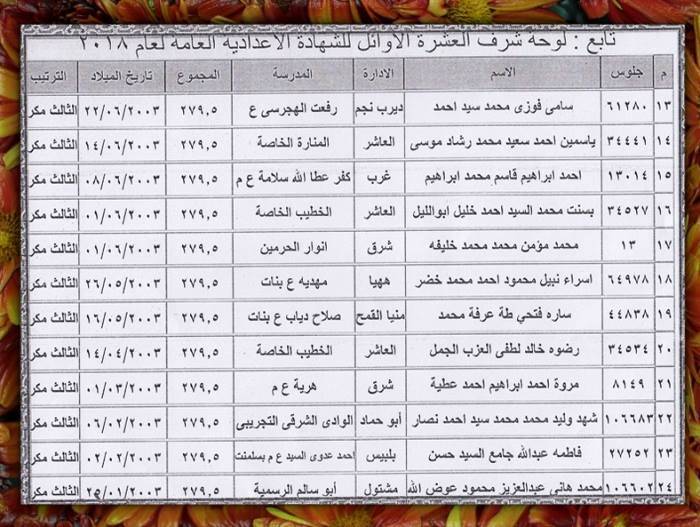 تابع : لوحة شرف العشرة الاوائل للشهادة الاعداديه العامه لعام ٢٠١٨
م جلوس الاسم الادارة المدرسة المجموع تاريخ الميلاد الترتيب
١٣ ٦١٢٨٠ سامى فوزى محمد سيد احمد ديرب نجم رفعت الهجرسى ع ٢٧٩,٥ ٢٢/٠٦/٢٠٠٣ الثالث مكر
١٤ ٣٤٤٤١ ياسمين احمد سعيد محمد رشاد موسى العاشر المنارة الخاصة ٢٧٩,٥ ١٤/٠٦/٢٠٠٣ الثالث مكر
١٥ ١٣٠١٤ احمد ابراهيم قاسم محمد ابراهيم غرب كفر عطا الله سلامة ع م ٢٧٩,٥ ٠٨/٠٦/٢٠٠٣ الثالث مكر
١٦ ٣٤٥٢٧ بسنت محمد السيد احمد خليل ابوالليل العاشر الخطيب الخاصة ٢٧٩,٥ ٠١/٠٦/٢٠٠٣ الثالث مكر
١٧ ١٣ محمد مؤمن محمد محمد خليفه شرق انوار الحرمين ٢٧٩,٥ ٠١/٠٦/٢٠٠٣ الثالث مكر
١٨ ٦٤٩٧٨ اسراء نبيل محمود احمد محمد خضر ههيا مهديه ع بنات ٢٧٩,٥ ٢٦/٠٥/٢٠٠٣ الثالث مكر
١٩ ٤٤٨٣٨ ساره فتحي طة عرفة محمد منيا القمح صلاح دياب ع بنات ٢٧٩,٥ ١٦/٠٥/٢٠٠٣ الثالث مكر
٢٠ ٣٤٥٣٤ رضوه خالد لطفى العزب الجمل العاشر الخطيب الخاصة ٢٧٩,٥ ١٤/٠٤/٢٠٠٣ الثالث مكر
٢١ ٨١٤٩ مروة احمد ابراهيم احمد عطية شرق هرية ع م ٢٧٩,٥ ٠١/٠٣/٢٠٠٣ الثالث مكر
٢٢ ١٠٦٦٨٣ شهد وليد محمد محمد سيد احمد نصار أبو حماد الوادى الشرقى التجريبى ٢٧٩,٥ ٠٦/٠٢/٢٠٠٣ الثالث مكر
٢٣ ٢٧٢٥٢ فاطمه عبدالله جامع السيد حسن بلبيس احمد عدوى السيد ع م بسلمنت ٢٧٩,٥ ٠٢/٠٢/٢٠٠٣ الثالث مكر
٢٤ ١٠٦٦٠٢ محمد هاني عبدالعزيز محمود عوض الله مشتول أبو سالم الرسمية ٢٧٩,٥ /٠١/٢٠٠٣ الثالث مكر